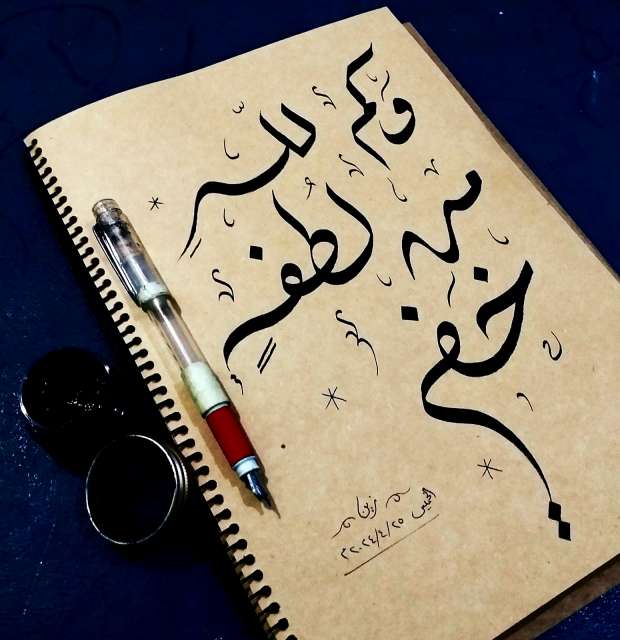 وكم لله
من لطفٍ
خفي
الخميس ٢٠٢٤/٤/٢٥م